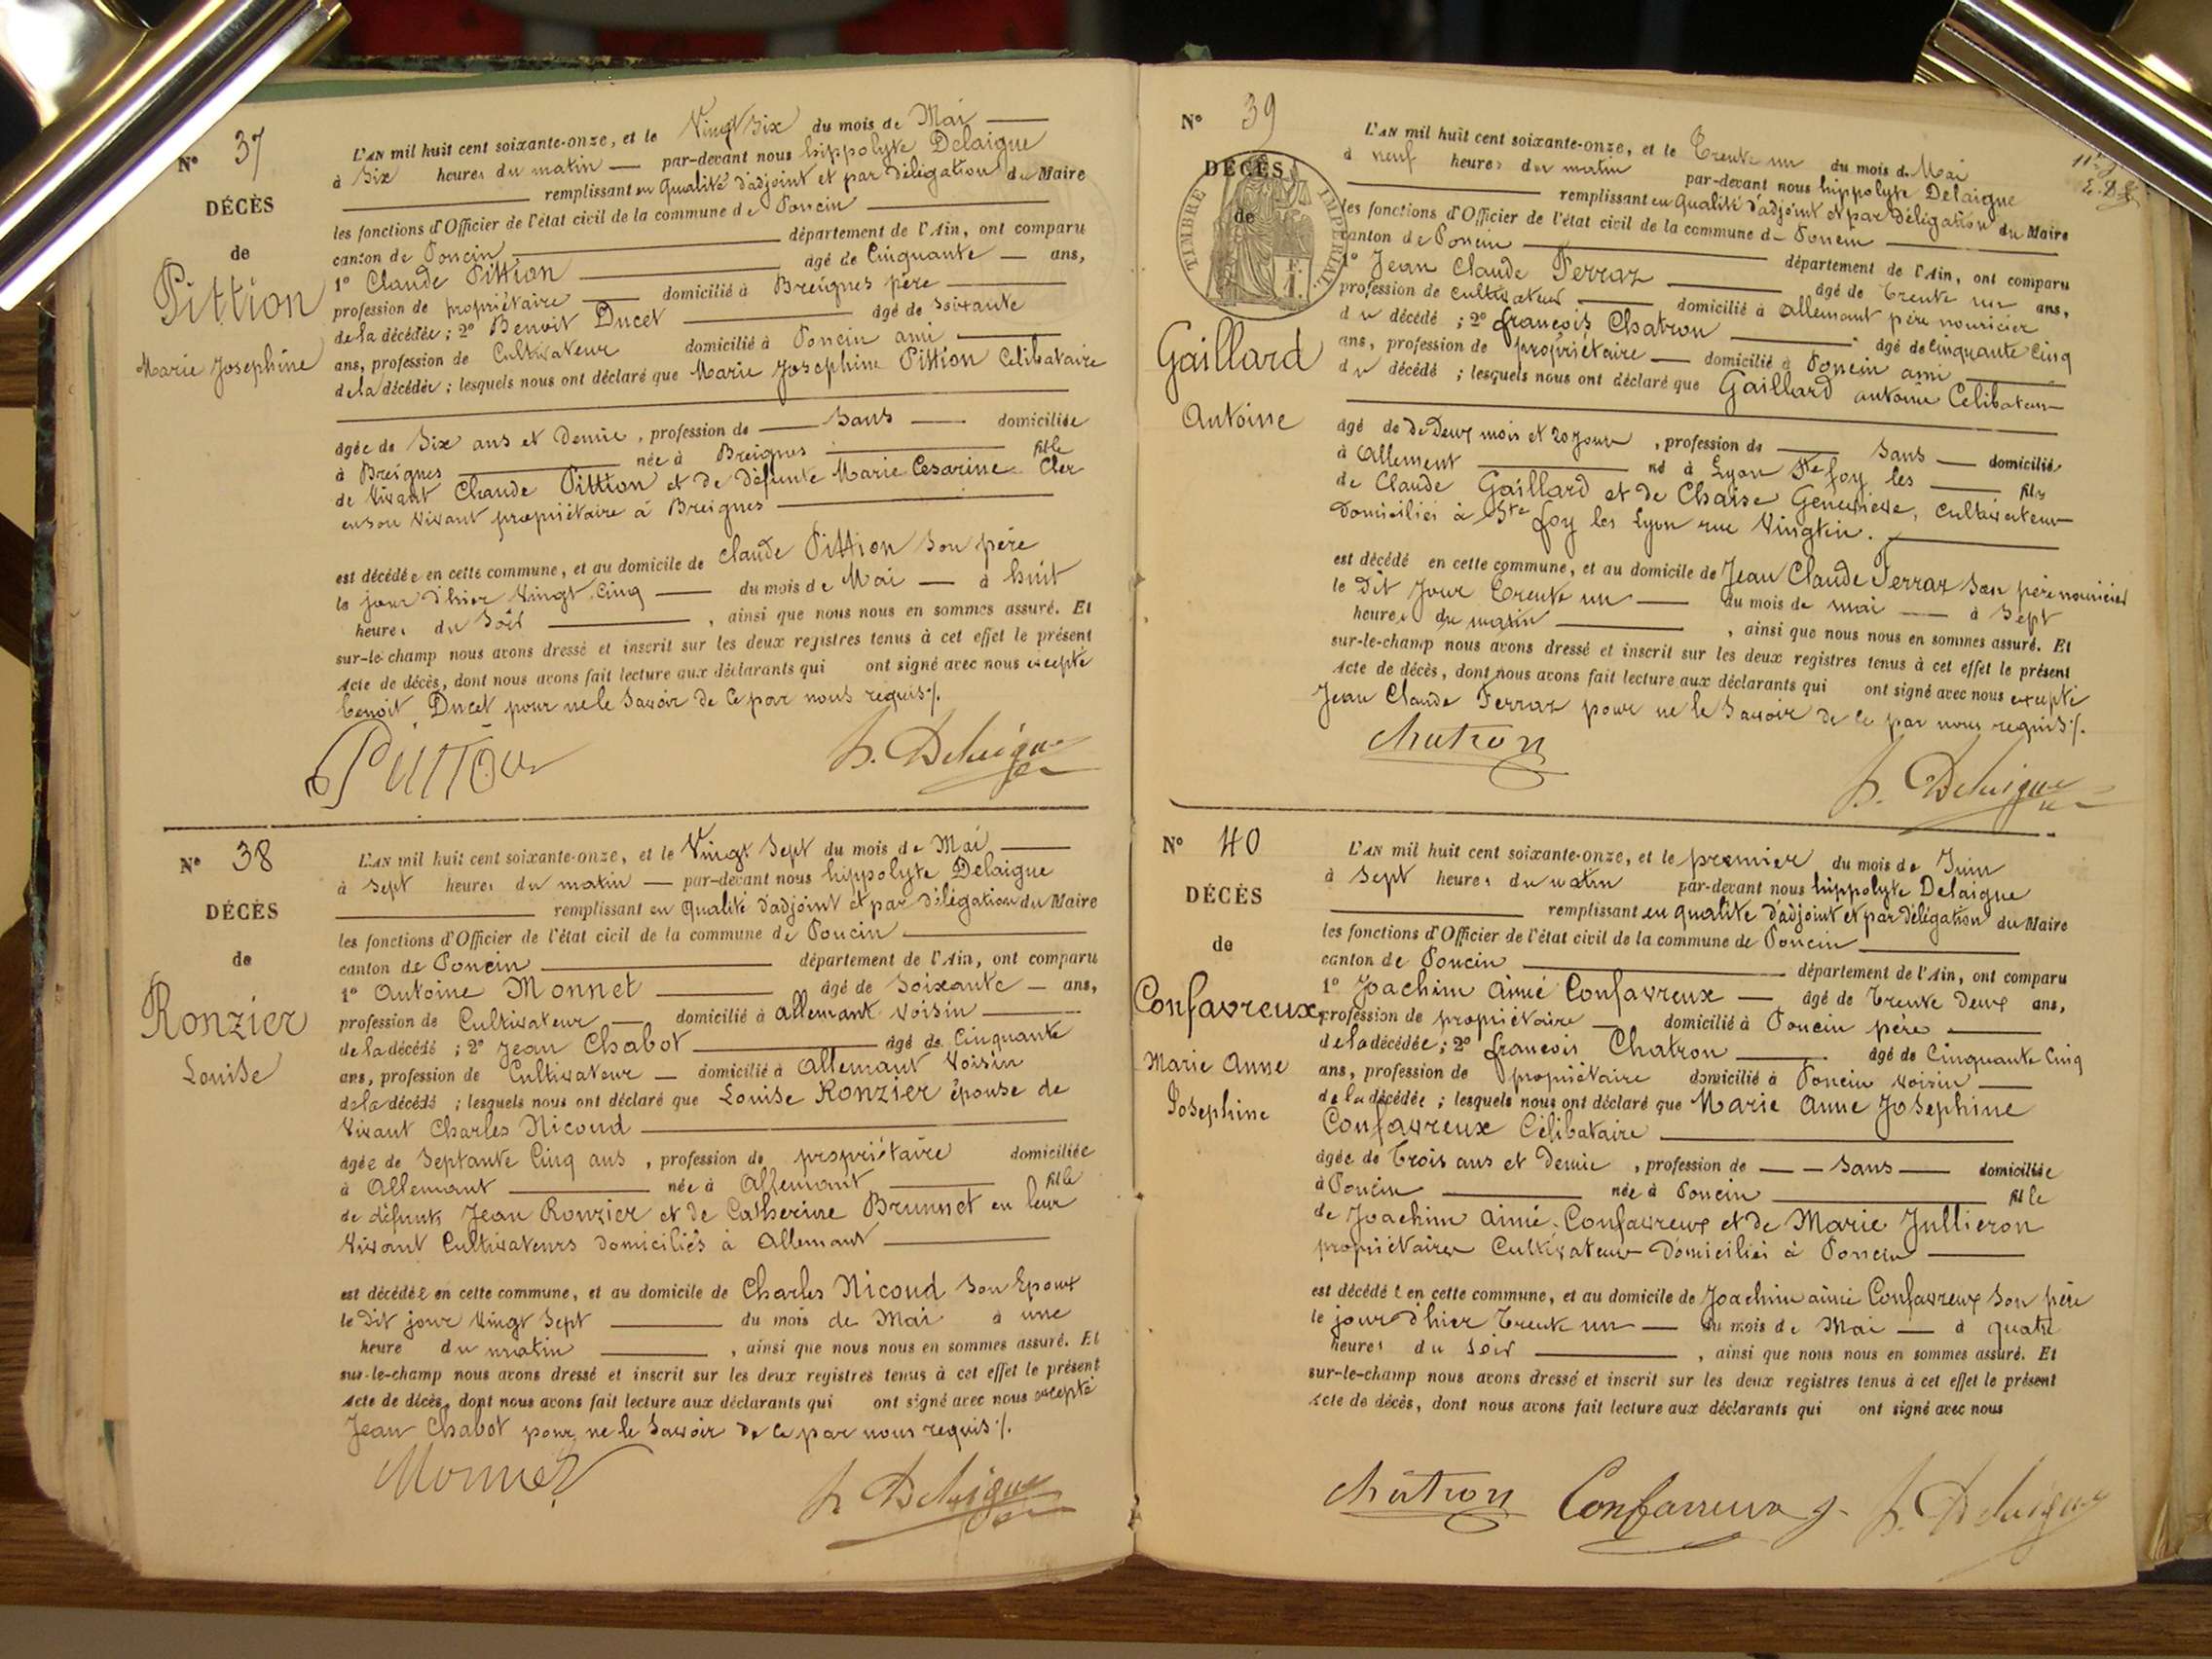 N° 37
DÉCÈS
de
Pittion
Marie Josephine
L'AN mil huit cent soixante-onze, et le Vingt Six du mois de Mai
à Six heures du matin par-devant nous hippolyte Delaigue
remplissant en qualité d'adjoint et par délégation du Maire
les fonctions d'Officier de l'état civil de la commune de Poncin
canton de Poncin département de l'Ain, ont comparu
1° Claude Pittion âgé de Cinquante ans,
profession de propriétaire domicilié à Breignes père
de la décédée ; 2° Benoit Ducet âgé de soixante
ans, profession de Cultivateur domicilié à Poncin ami
de la décédée ; lesquels nous ont déclaré que Marie Josephine Pittion Celibataire
âgée de Six ans et demie , profession de Sans domiciliée
à Breignes née à Breignes fille
de vivant Claude Pittion et de défunte Marie Cesarine Cler
en son vivant propriétaire à Breignes
est décédée en cette commune, et au domicile de Claude Pittion son père
le jour d'hier Vingt Cinq du mois de Mai à huit
heures du Soir , ainsi que nous nous en sommes assuré. Et
sur-le-champ nous avons dressé et inscrit sur les deux registres tenus à cet effet le présent
Acte de décès, dont nous avons fait lecture aux déclarants qui ont signé avec nous excepté
benoit Ducet pour ne le savoir de ce par nous requis ./.
Pittion h. Delaigue
N° 38
DÉCÈS
de
Ronzier
Louise
L'AN mil huit cent soixante-onze, et le Vingt Sept du mois de Mai
à Sept heures du matin par-devant nous hippolyte Delaigue
remplissant en qualité d'adjoint et par délégation du Maire
les fonctions d'Officier de l'état civil de la commune de Poncin
canton de Poncin département de l'Ain, ont comparu
1° Antoine Monnet âgé de Soixante ans,
profession de Cultivateur domicilié à allemant voisin
de la décédé ; 2° Jean Chabot âgé de Cinquante
ans, profession de Cultivateur domicilié à allemant Voisin
de la décédé ; lesquels nous ont déclaré que Louise Ronzier épouse de
Vivant Charles Nicoud
âgée de Septante Cinq ans , profession de propriétaire domiciliée
à Allemant née à Allemant fille
de défunts Jean Ronzier et de Catherine Brunnet en leur
vivant Cultivateurs domiciliés à Allemant
est décédée en cette commune, et au domicile de Charles Nicoud Son Epoux
le dit jour Vingt Sept du mois de Mai à une
heure du matin , ainsi que nous nous en sommes assuré. Et
sur-le-champ nous avons dressé et inscrit sur les deux registres tenus à cet effet le présent
Acte de décès, dont nous avons fait lecture aux déclarants qui ont signé avec nous excepté
Jean Chabot pour ne le Savoir de ce par nous requis ./.
Monnet h Delaigue
N° 39
DÉCÈS
de
TIMBRE IMPERIAL
F.
1.
Gaillard
Antoine
L'AN mil huit cent soixante-onze, et le Trente un du mois de Mai
à neuf heures du matin par-devant nous hippolyte Delaigue
remplissant en qualité d'adjoint et par délégation du Maire
les fonctions d'Officier de l'état civil de la commune de Poncin
canton de Poncin département de l'Ain, ont comparu
1° Jean Claude Ferraz âgé de Trente un ans,
profession de cultivateur domicilié à allemant père nouricier
du décédé ; 2° françois Chatron âgé de Cinquante Cinq
ans, profession de propriétaire domicilié à Poncin ami
du décédé ; lesquels nous ont déclaré que Gaillard antoine Celibataire
âgé de de Deux mois et 20 jours , profession de Sans domicilié
à Allement né à Lyon Ste foy les fils
de Claude Gaillard et de Chaise Genevieve, cultivateurs
Domiciliés à Ste foy les Lyon rue Vingtin.
est décédé en cette commune, et au domicile de Jean Claude Ferraz son père nouricier
le Dit Jour Trente un du mois de mai à Sept
heures du matin , ainsi que nous nous en sommes assuré. Et
sur-le-champ nous avons dressé et inscrit sur les deux registres tenus à cet effet le présent
Acte de décès, dont nous avons fait lecture aux déclarants qui ont signé avec nous excepté
Jean Claude Ferraz pour ne le Savoir de ce par nous requis ./.
chatron
h. Delaigue
N° 40
DÉCÈS
de
Confavreux
Marie Anne
Josephine
L'AN mil huit cent soixante-onze, et le premier du mois de Juin
à Sept heures du matin par-devant nous hippolyte Delaigue
remplissant en qualité d'adjoint et par délégation du Maire
les fonctions d'Officier de l'état civil de la commune de Poncin
canton de Poncin département de l'Ain, ont comparu
1° Joachim aimé Confavreux âgé de Trente Deux ans,
profession de propriétaire domicilié à Poncin père
de la décédée ; 2° françois Chatron âgé de Cinquante Cinq
ans, profession de propriétaire domicilié à Poncin voisin
de la décédée ; lesquels nous ont déclaré que Marie Anne Josephine
Confavreux Célibataire
âgée de Trois ans et Demie , profession de Sans domiciliée
à Poncin née à Poncin fille
de Joachim aimé Confavreux et de Marie Jullieron
propriétaires Cultivateurs Domiciliés à Poncin
est décédée en cette commune, et au domicile de Joachim aimé Confavreux Son père
le jour d'hier Trente un du mois de Mai à quatre
heures du Soir , ainsi que nous nous en sommes assuré. Et
sur-le-champ nous avons dressé et inscrit sur les deux registres tenus à cet effet le présent
Acte de décès, dont nous avons fait lecture aux déclarants qui ont signé avec nous
chatron Confavreux j. h. Delaigue